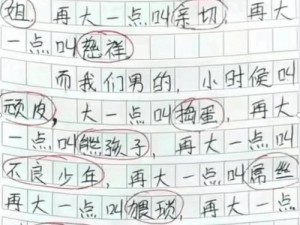 姐，再大一点叫亲切，再大
一点叫慈祥
而我们男的，小时候叫
顽皮，大一点叫捣蛋，再大
一点叫熊孩子，再大一点叫
不良少年，再大一点叫屌丝
再大一点叫猥琐，再大一点